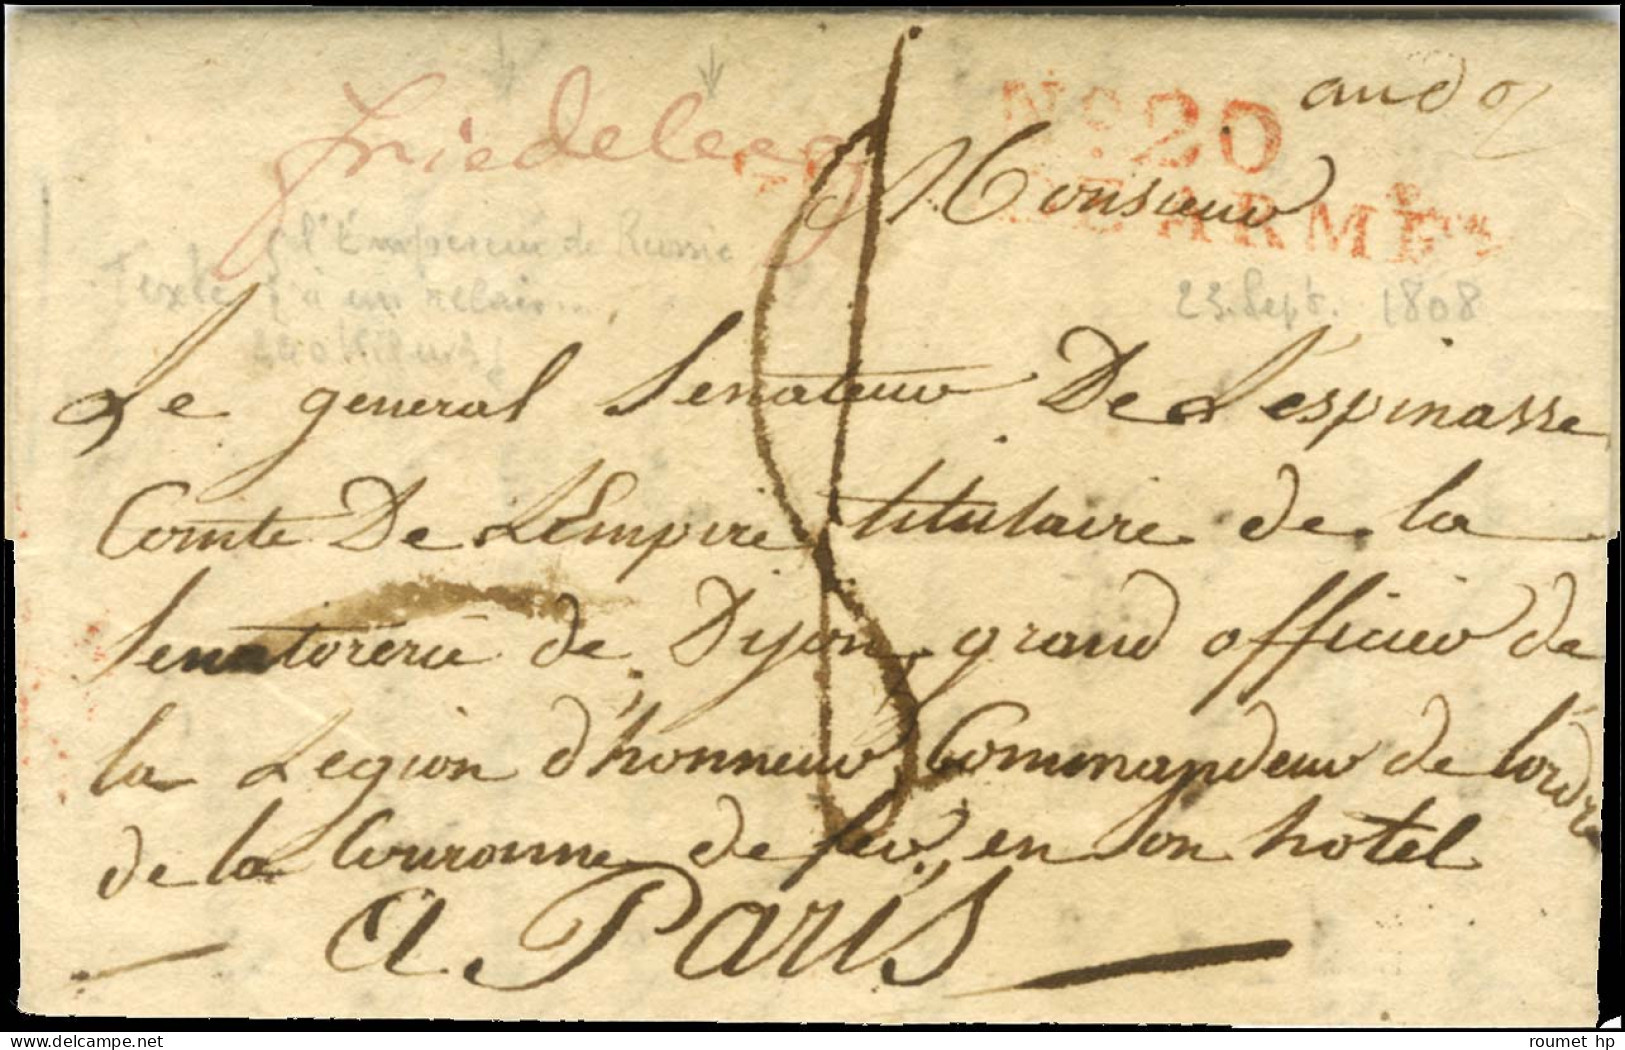 friedeberg
Nº. 20
ARMÉE
Monsieur
l'Empereur de Russie
Texte à un relais...
23. Sept. 1808
Le general Senateur De L'espinasse
Comte De L'Empire titulaire de la
Senatorerie de Dijon, grand officier de
la Legion d'honneur, Commandeur de l'ordre
de la Couronne de fer, en son hotel
A Paris
roumet hp